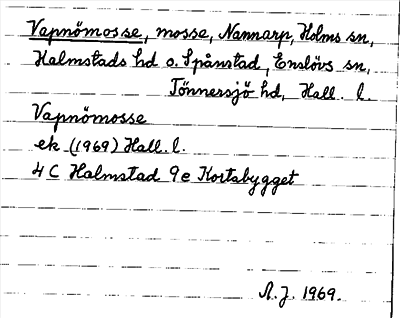 Vapnömosse, mosse, Nannarp, Holms sn,
Halmstads hd o. Spånstad, Enslövs sn,
Tönnersjö hd, Hall. l.
Vapnömosse
ek (1969) Hall. l.
4 C Halmstad 9 e Kortabygget
A.J. 1969.